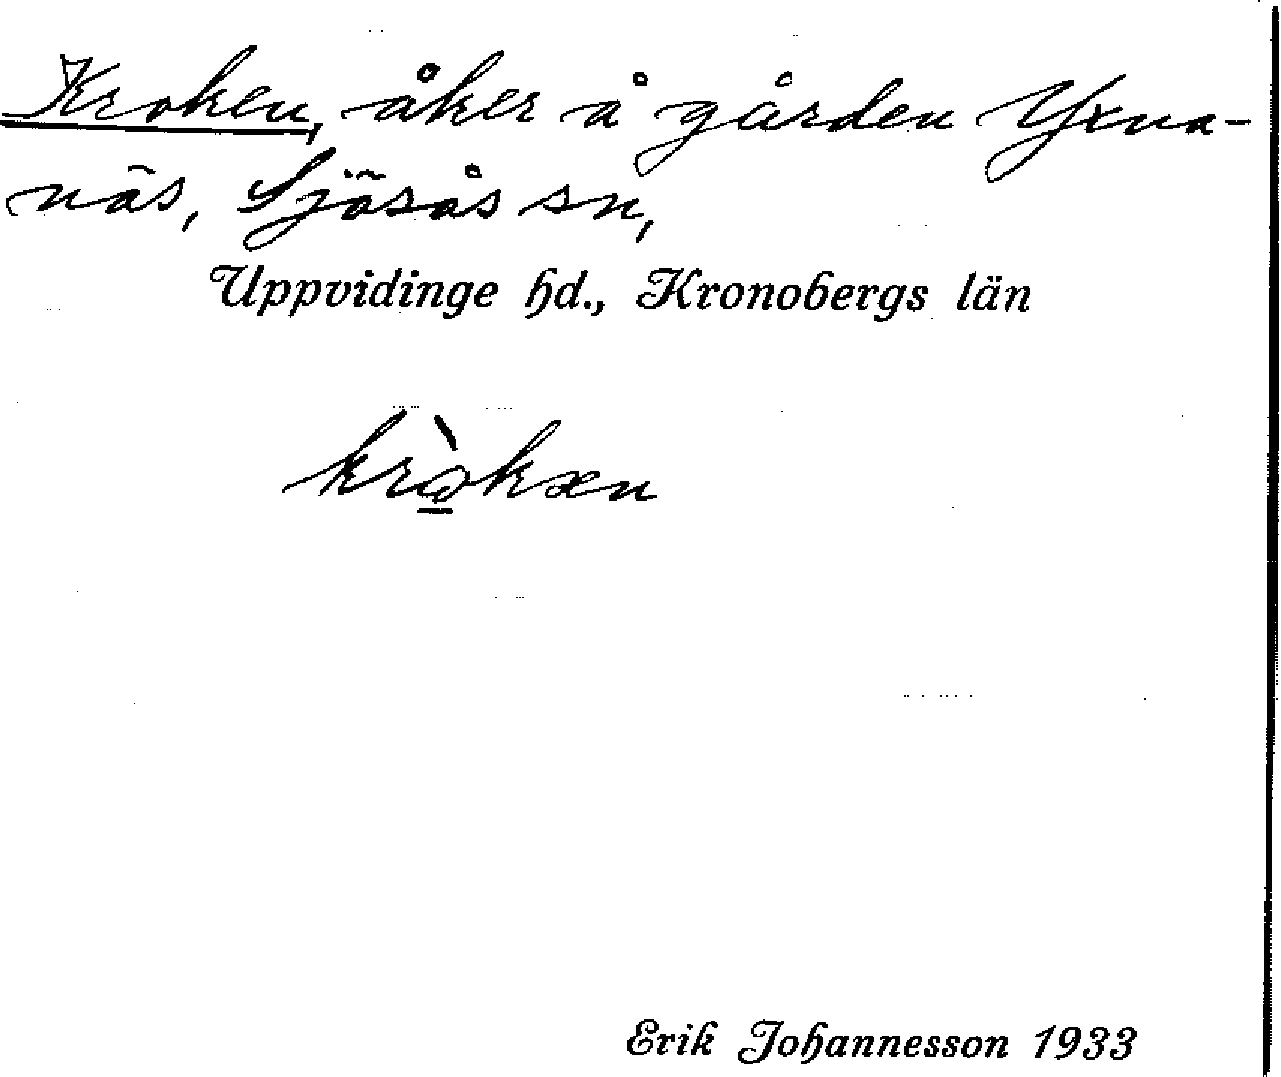 Kroken, åker å gården Yxna-
näs, Sjösås sn,
Uppvidinge hd., Kronobergs län
Erik Johannesson 1933